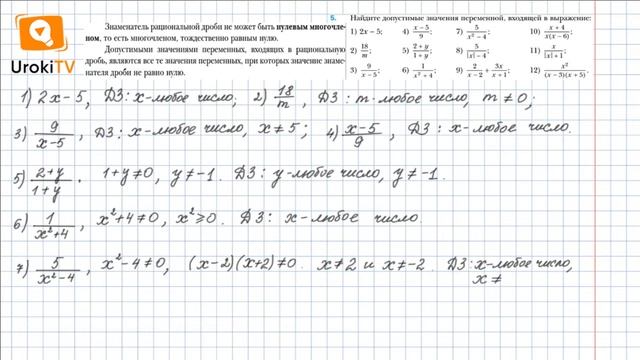 UrokiTV
Знаменатель рациональной дроби не может быть нулевым многочле-
ном, то есть многочленом, тождественно равным нулю.
Допустимыми значениями переменных, входящих в рациональную
дробь, являются все те значения переменных, при которых значение знаме-
нателя дроби не равно нулю.
5. Найдите допустимые значения переменной, входящей в выражение:
1) 2x − 5; 4) (x − 5)/9; 7) 5/(x² − 4); 10) (x + 4)/(x(x − 6));
2) 18/m; 5) (2 + y)/(1 + y); 8) 5/(|x| − 4); 11) x/(|x| + 1);
3) 9/(x − 5); 6) 1/(x² + 4); 9) 2/(x − 2) + 3x/(x + 1); 12) x²/((x − 3)(x + 5)).
1) 2x − 5, ДЗ: x-любое число; 2) 18/m, ДЗ: m-любое число, m ≠ 0;
3) 9/(x−5), ДЗ: x-любое число, x ≠ 5; 4) (x−5)/9, ДЗ: x-любое число.
5) (2+y)/(1+y). 1+y≠0, y≠−1. ДЗ: y-любое число, y≠−1.
6) 1/(x²+4), x²+4≠0, x²⩾0. ДЗ: x-любое число.
7) 5/(x²−4), x²−4≠0, (x−2)(x+2)≠0. x≠2 и x≠−2. ДЗ: x-любое число,
x≠